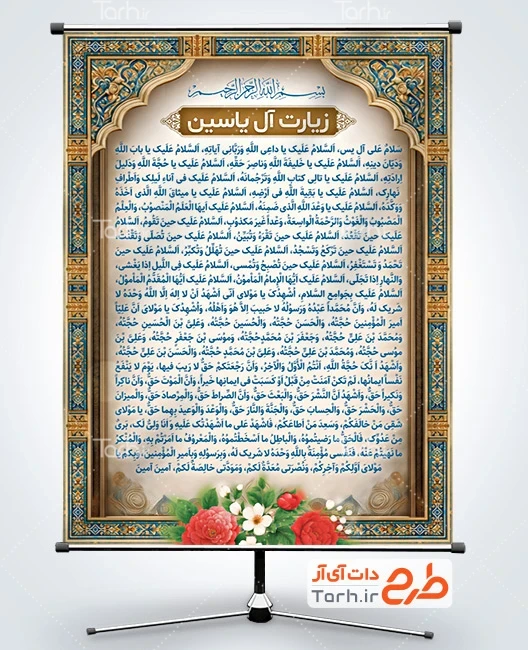 بِسْمِ اللَّهِ الرَّحْمنِ الرَّحیمِ
زیارت آل یاسین
سَلامٌ عَلی آلِ یس، اَلسَّلامُ عَلَیْکَ یا داعِیَ اللَّهِ وَرَبّانِیَّ آیاتِهِ، اَلسَّلامُ عَلَیْکَ یا بابَ اللَّهِ
وَدَیّانَ دینِهِ، اَلسَّلامُ عَلَیْکَ یا خَلیفَةَ اللَّهِ وَناصِرَ حَقِّهِ، اَلسَّلامُ عَلَیْکَ یا حُجَّةَ اللَّهِ وَدَلیلَ
اِرادَتِهِ، اَلسَّلامُ عَلَیْکَ یا تالِیَ کِتابِ اللَّهِ وَتَرْجُمانَهُ، اَلسَّلامُ عَلَیْکَ فی آناءِ لَیْلِکَ وَاَطْرافِ
نَهارِکَ، اَلسَّلامُ عَلَیْکَ یا بَقِیَّةَ اللَّهِ فی اَرْضِهِ، اَلسَّلامُ عَلَیْکَ یا میثاقَ اللَّهِ الَّذی اَخَذَهُ
وَوَکَّدَهُ، اَلسَّلامُ عَلَیْکَ یا وَعْدَ اللَّهِ الَّذی ضَمِنَهُ، اَلسَّلامُ عَلَیْکَ اَیُّهَا الْعَلَمُ الْمَنْصُوبُ، وَالْعِلْمُ
الْمَصْبُوبُ وَالْغَوْثُ وَالرَّحْمَةُ الْواسِعَةُ، وَعْداً غَیْرَ مَکْذُوبٍ، اَلسَّلامُ عَلَیْکَ حینَ تَقُومُ، اَلسَّلامُ
عَلَیْکَ حینَ تَقْعُدُ، اَلسَّلامُ عَلَیْکَ حینَ تَقْرَءُ وَتُبَیِّنُ، اَلسَّلامُ عَلَیْکَ حینَ تُصَلّی وَتَقْنُتُ،
اَلسَّلامُ عَلَیْکَ حینَ تَرْکَعُ وَتَسْجُدُ، اَلسَّلامُ عَلَیْکَ حینَ تُهَلِّلُ وَتُکَبِّرُ، اَلسَّلامُ عَلَیْکَ حینَ
تَحْمَدُ وَتَسْتَغْفِرُ، اَلسَّلامُ عَلَیْکَ حینَ تُصْبِحُ وَتُمْسی، اَلسَّلامُ عَلَیْکَ فِی اللَّیْلِ اِذا یَغْشی،
وَالنَّهارِ اِذا تَجَلّی، اَلسَّلامُ عَلَیْکَ اَیُّهَا الْاِمامُ الْمَأْمُونُ، اَلسَّلامُ عَلَیْکَ اَیُّهَا الْمُقَدَّمُ الْمَأْمُولُ،
اَلسَّلامُ عَلَیْکَ بِجَوامِعِ السَّلامِ، اُشْهِدُکَ یا مَوْلایَ اَنّی اَشْهَدُ اَنْ لا اِلهَ اِلَّا اللَّهُ وَحْدَهُ لا
شَریکَ لَهُ، وَاَنَّ مُحَمَّداً عَبْدُهُ وَرَسُولُهُ لا حَبیبَ اِلّا هُوَ وَاَهْلُهُ، وَاُشْهِدُکَ یا مَوْلایَ اَنَّ عَلِیّاً
اَمیرَ الْمُؤْمِنینَ حُجَّتُهُ، وَالْحَسَنَ حُجَّتُهُ، وَالْحُسَیْنَ حُجَّتُهُ، وَعَلِیَّ بْنَ الْحُسَیْنِ حُجَّتُهُ،
وَمُحَمَّدَ بْنَ عَلِیٍّ حُجَّتُهُ، وَجَعْفَرَ بْنَ مُحَمَّدٍ حُجَّتُهُ، وَمُوسَی بْنَ جَعْفَرٍ حُجَّتُهُ، وَعَلِیَّ بْنَ
مُوسی حُجَّتُهُ، وَمُحَمَّدَ بْنَ عَلِیٍّ حُجَّتُهُ، وَعَلِیَّ بْنَ مُحَمَّدٍ حُجَّتُهُ، وَالْحَسَنَ بْنَ عَلِیٍّ حُجَّتُهُ،
وَاَشْهَدُ اَنَّکَ حُجَّةُ اللَّهِ، اَنْتُمُ الْاَوَّلُ وَالْآخِرُ، وَاَنَّ رَجْعَتَکُمْ حَقٌّ لا رَیْبَ فیها، یَوْمَ لا یَنْفَعُ
نَفْساً ایمانُها، لَمْ تَکُنْ آمَنَتْ مِنْ قَبْلُ اَوْ کَسَبَتْ فی ایمانِها خَیْراً، وَاَنَّ الْمَوْتَ حَقٌّ، وَاَنَّ ناکِراً
وَنَکیراً حَقٌّ، وَاَشْهَدُ اَنَّ النَّشْرَ حَقٌّ، وَالْبَعْثَ حَقٌّ، وَاَنَّ الصِّراطَ حَقٌّ، وَالْمِرْصادَ حَقٌّ، وَالْمیزانَ
حَقٌّ، وَالْحَشْرَ حَقٌّ، وَالْحِسابَ حَقٌّ، وَالْجَنَّةَ وَالنّارَ حَقٌّ، وَالْوَعْدَ وَالْوَعیدَ بِهِما حَقٌّ، یا مَوْلایَ
شَقِیَ مَنْ خالَفَکُمْ، وَسَعِدَ مَنْ اَطاعَکُمْ، فَاشْهَدْ عَلی ما اَشْهَدْتُکَ عَلَیْهِ وَ اَنَا وَلِیٌّ لَکَ، بَرِیءٌ
مِنْ عَدُوِّکَ، فَالْحَقُّ ما رَضیتُمُوهُ، وَالْباطِلُ ما اَسْخَطْتُمُوهُ، وَالْمَعْرُوفُ ما اَمَرْتُمْ بِهِ، وَالْمُنْکَرُ
ما نَهَیْتُمْ عَنْهُ، فَنَفْسی مُؤْمِنَةٌ بِاللَّهِ وَحْدَهُ لا شَریکَ لَهُ، وَبِرَسُولِهِ وَبِاَمیرِ الْمُؤْمِنینَ، وَبِکُمْ یا
مَوْلایَ اَوَّلِکُمْ وَآخِرِکُمْ، وَنُصْرَتی مُعَدَّةٌ لَکُمْ، وَمَوَدَّتی خالِصَةٌ لَکُمْ، آمینَ آمینَ
طرح دات آی‌آر
Tarh.ir